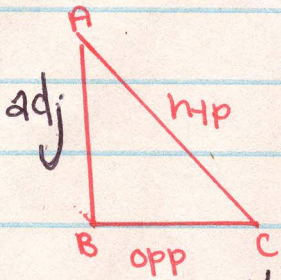 A
adj
hyp
B
opp
C